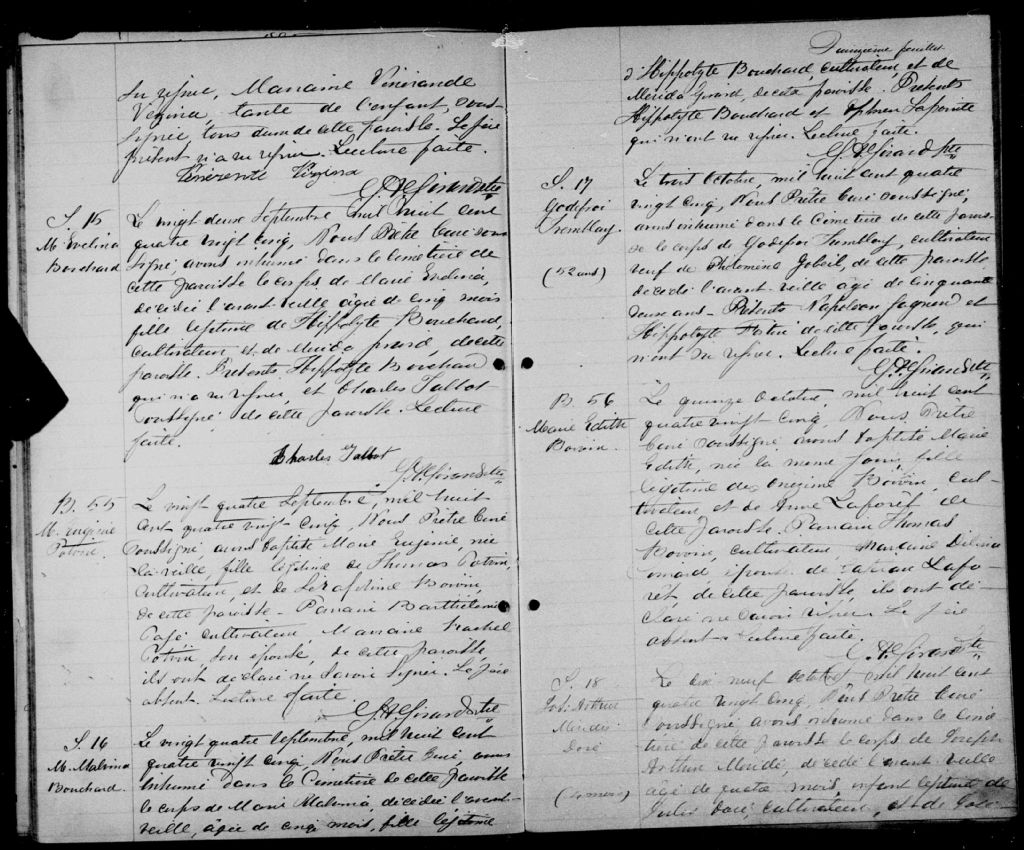 su signer, Marraine Vénérande
Vezina, tante de l'enfant, sous-
signée, tous deux de cette paroisse. Le père
présent n'a su signer. Lecture faite.
Vénérente Vezina
G. A. Girard Ptre
S. 15
M. Evelina
Bouchard
Le vingt deux Septembre mil huit cent
quatre vingt cinq, Nous Prêtre Curé sous
signé, avons inhumé dans le cimetière de
cette paroisse le corps de Marie Evelina,
décédée l'avant veille âgée de cinq mois
fille légitime de Hippolyte Bouchard,
cultivateur et de Merida Girard, de cette
paroisse. Présents Hippolyte Bouchard
qui n'a su signer, et Charles Talbot
soussigné de cette paroisse. Lecture
faite.
Charles Talbot
G. A. Girard Ptre
B. 55
M. Eugénie
Potvin
Le vingt quatre Septembre, mil huit
cent quatre vingt cinq, Nous Prêtre Curé
soussigné, avons baptisé Marie Eugénie, née
la veille, fille légitime de Thomas Potvin,
cultivateur, et de Séraphine Boivin,
de cette paroisse. Parrain Barthélemi
Pagé cultivateur, Marraine Rachel
Potvin, son épouse, de cette paroisse,
ils ont déclaré ne savoir signer. Le père
absent. Lecture faite.
G. A. Girard Ptre
S. 16
M. Malvina
Bouchard.
Le vingt quatre Septembre, mil huit cent
quatre vingt cinq, Nous Prêtre Curé, avons
inhumé dans le Cimetière de cette paroisse
le corps de Marie Malvina, décédée l'avant-
veille, âgée de cinq mois, fille légitime
feuillet
d'Hippolyte Bouchard, cultivateur et de
Merida Girard, de cette paroisse. Présents
Hippolyte Bouchard et Lapointe
qui n'ont su signer. Lecture faite.
G. A. Girard Ptre
S. 17
Godefroi
Tremblay
(52 ans)
Le trois Octobre, mil huit cent quatre
vingt cinq, Nous Prêtre Curé soussigné,
avons inhumé dans le Cimetière de cette parois
se le corps de Godefroi Tremblay, cultivateur
veuf de Philomène Gobeil, de cette paroisse
décédé l'avant veille agé de cinquante
deux ans. Présents Napoléon Gagnon et
Hippolyte de cette paroisse, qui
n'ont su signer. Lecture faite.
G. A. Girard Ptre
B. 56
Marie Edith
Boivin.
Le quinze Octobre, mil huit cent
quatre vingt cinq, Nous Prêtre
Curé soussigné avons baptisé Marie
Edith, née le meme jour, fille
légitime de Onezime Boivin, cul-
tivateur et de Anne Laforêt de
cette paroisse. Parrain Thomas
Boivin, cultivateur, Marraine Delima
Simard épouse de Lafo-
rêt, de cette paroisse, ils ont dé-
claré ne savoir signer. Le père
absent. Lecture faite.
G. A. Girard Ptre
S. 18
Jos. Arthur
Méridé
Doré
(4 mois)
Le dix neuf octobre mil huit cent
quatre vingt cinq, Nous Prêtre Curé
soussigné avons inhumé dans le cime
tière de cette paroisse le corps de Joseph
Arthur Méridé, décédé l'avant veille
agé de quatre mois, enfant légitime de
Jules Doré, cultivateur, et de